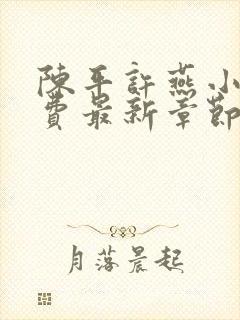 陳平許燕小
費最新章節
月落晨起